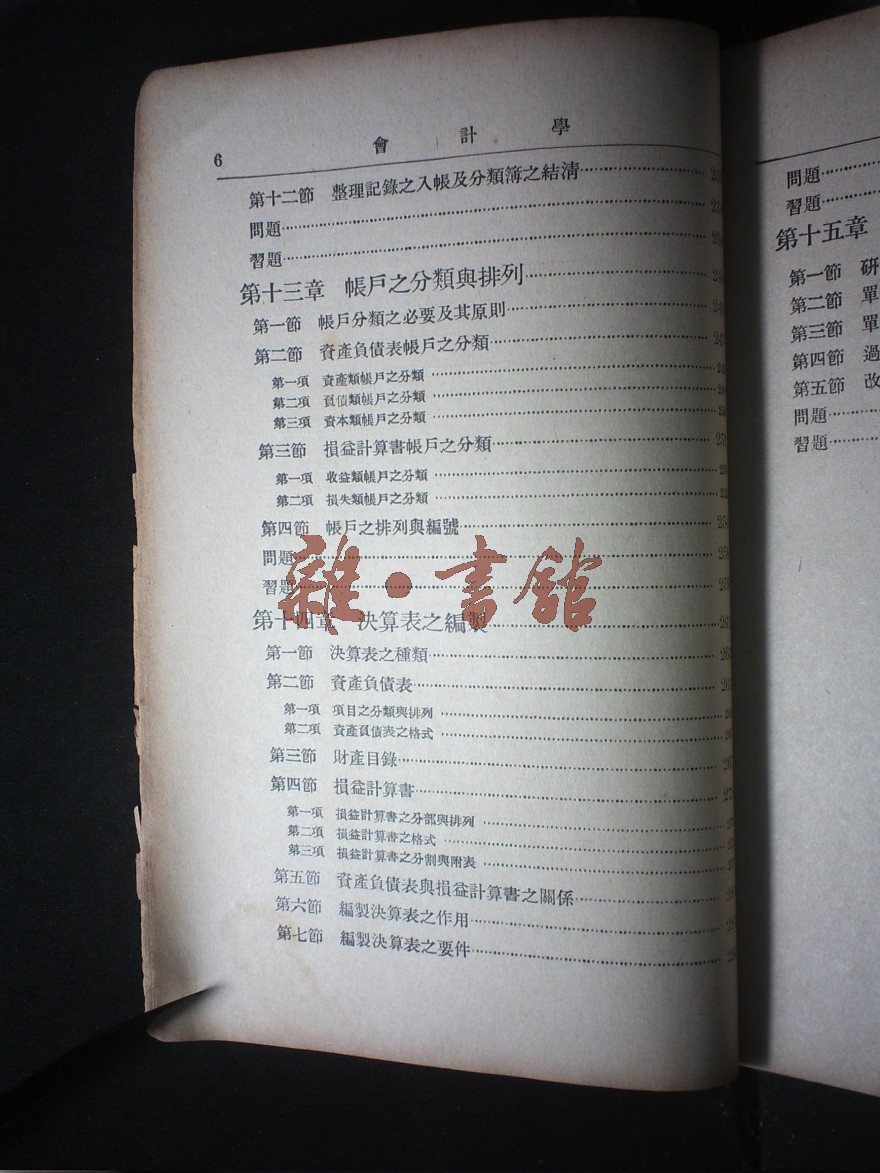 6
會計學
第十二節 整理記錄之入帳及分類簿之結清
問題
習題
第十三章 帳戶之分類與排列
第一節 帳戶分類之必要及其原則
第二節 資產負債表帳戶之分類
第一項 資產類帳戶之分類
第二項 負債類帳戶之分類
第三項 資本類帳戶之分類
第三節 損益計算書帳戶之分類
第一項 收益類帳戶之分類
第二項 損失類帳戶之分類
第四節 帳戶之排列與編號
問題
習題
第十四章 決算表之編製
第一節 決算表之種類
第二節 資產負債表
第一項 項目之分類與排列
第二項 資產負債表之格式
第三節 財產目錄
第四節 損益計算書
第一項 損益計算書之分部與排列
第二項 損益計算書之格式
第三項 損益計算書之分割與附表
第五節 資產負債表與損益計算書之關係
第六節 編製決算表之作用
第七節 編製決算表之要件
問題
習題
第十五章
第一節 研
第二節 單
第三節 單
第四節 過
第五節 改
問題
習題
雜·書館